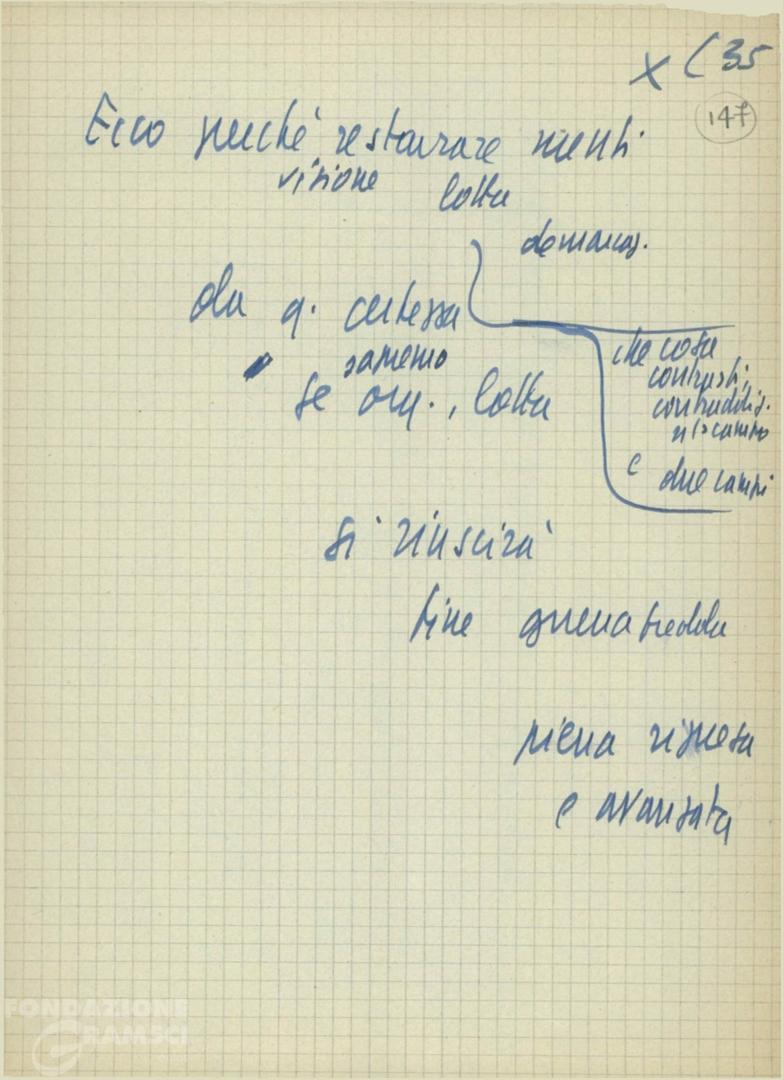 x (35
147
Ecco perché restaurare menti
visione lotta
democraz.
da q. certezza
sapremo
se org., lotta
che cosa
contrasti,
contraddiz.
n/s campo
e due campi
si riuscirà
fine guerra fredda
piena ripresa
e avanzata
FONDAZIONE
GRAMSCI